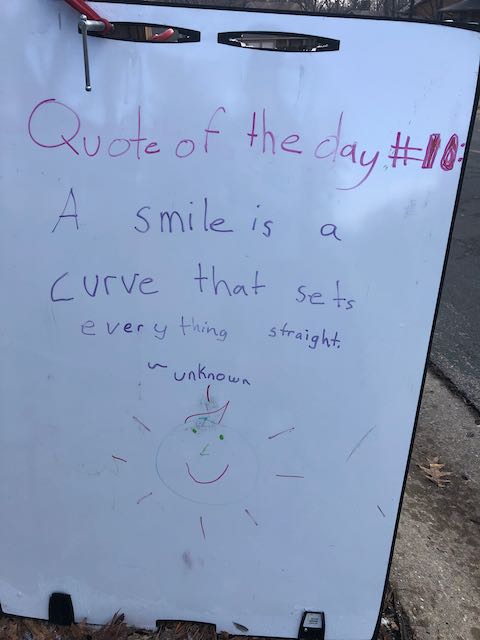 Quote of the day #10:
A smile is a
curve that sets
everything straight.
~ unknown